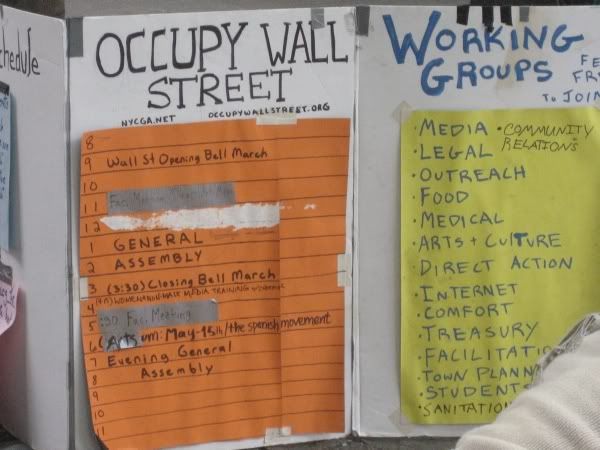 chedule
OCCUPY WALL
STREET
NYCGA.NET OCCUPYWALLSTREET.ORG
8
9 Wall St Opening Bell March
10
11 Fac.
12
1 GENERAL
2 ASSEMBLY
3 (3:30) Closing Bell March
4 MEDIA TRAINING
5 :30 Fac. Meeting
6 May-15th/the spanish movement
7 Evening General
8 Assembly
9
10
11
WORKING
GROUPS FE
FR
TO JOIN
· MEDIA · COMMUNITY
RELATIONS
· LEGAL
· OUTREACH
· FOOD
· MEDICAL
· ARTS + CULTURE
· DIRECT ACTION
· INTERNET
· COMFORT
· TREASURY
· FACILITATIO
· TOWN PLANN
· STUDENTS
· SANITATION